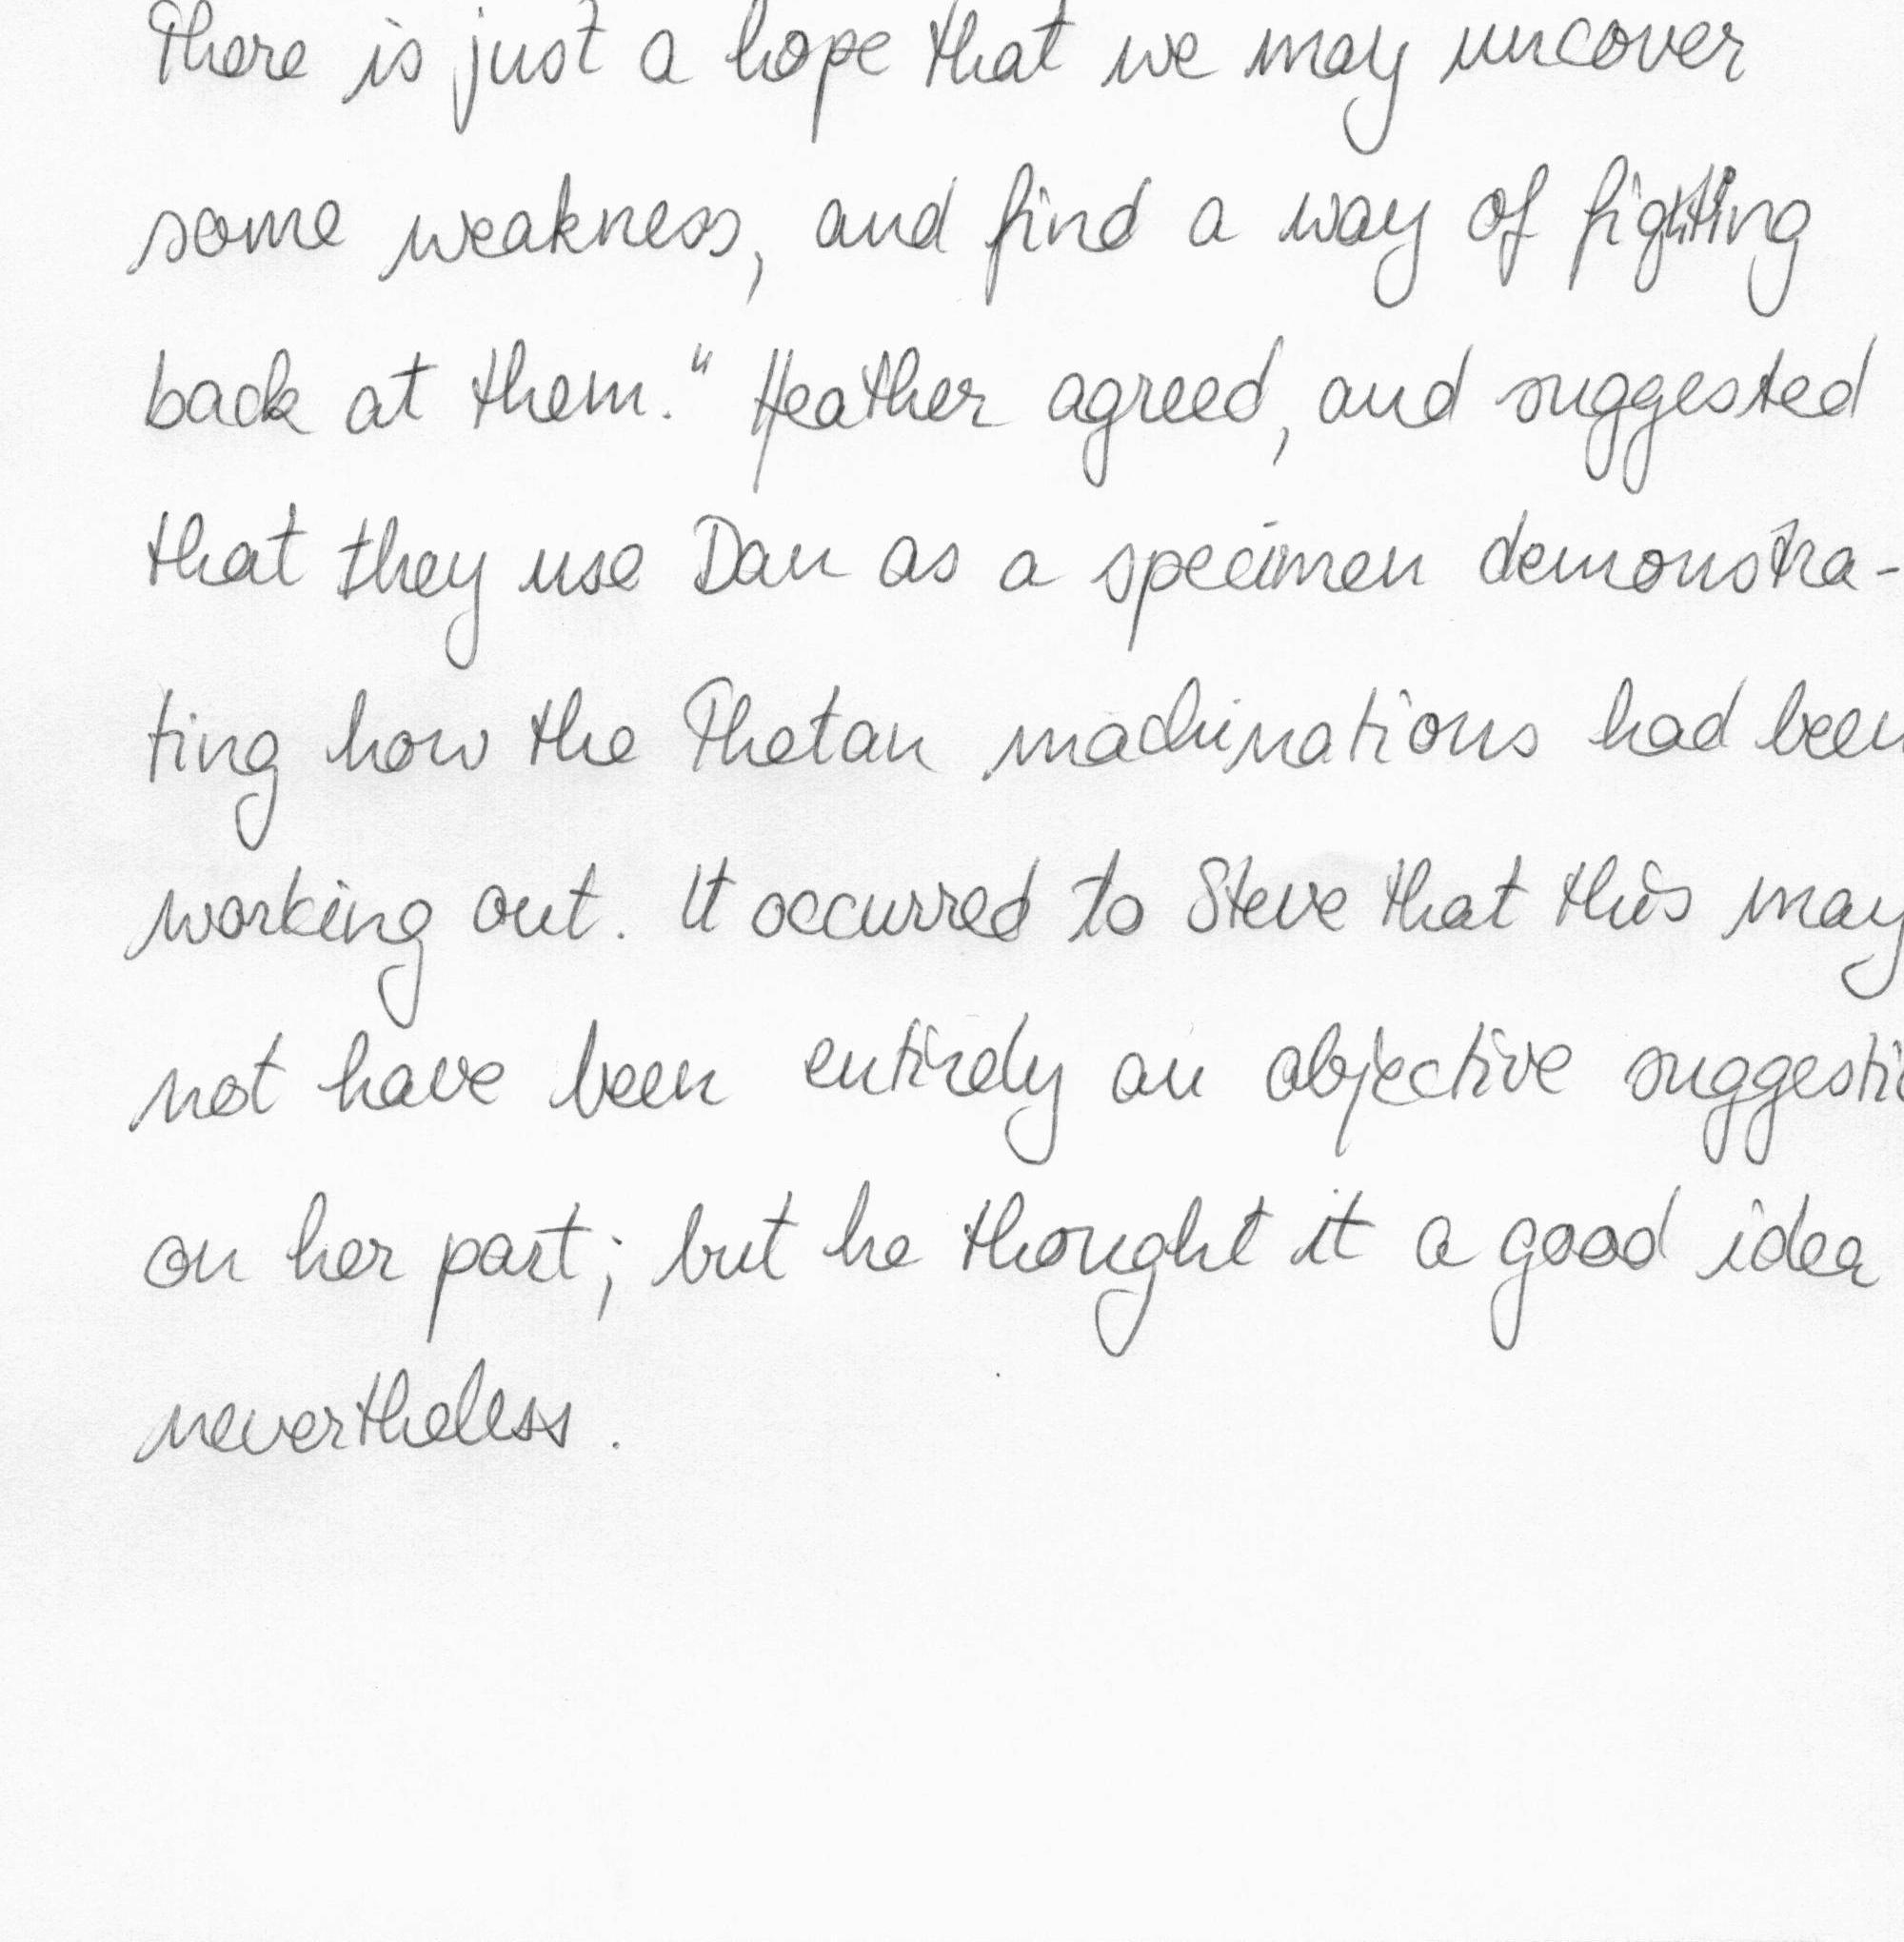 There is just a hope that we may uncover
some weakness, and find a way of fighting
back at them." Heather agreed, and suggested
that they use Dan as a specimen demonstra-
ting how the Thetan machinations had been
working out. It occurred to Steve that this may
not have been entirely an objective suggestio
on her part; but he thought it a good idea
nevertheless.